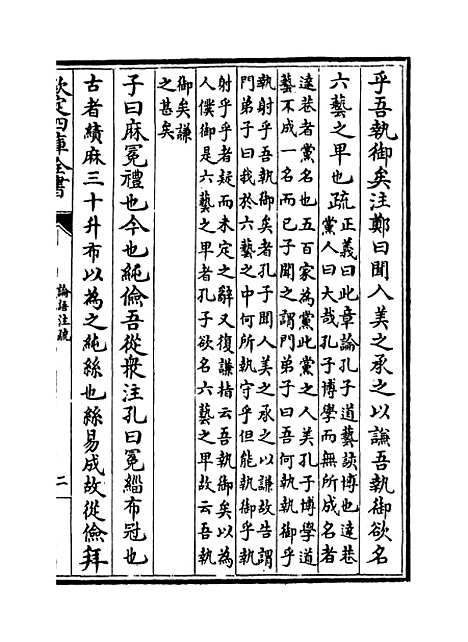 乎吾執御矣注鄭曰聞人美之承之以謙吾執御欲名
六藝之卑也疏
正義曰此章論孔子道藝該博也達巷
黨人曰大哉孔子博學而無所成名者
達巷者黨名也五百家為黨此黨之人美孔子博學道
藝不成一名而已子聞之謂門弟子曰吾何執執御乎
執射乎吾執御矣者孔子聞人美之承之以謙故告謂
門弟子曰我於六藝之中何所執守乎但能執御乎執
射乎乎者疑而未定之辭又復謙指云吾執御矣以為
人僕御是六藝之卑者孔子欲名六藝之卑故云吾執
御矣謙
之甚矣
子曰麻冕禮也今也純儉吾從衆注孔曰冕緇布冠也
古者績麻三十升布以為之純絲也絲易成故從儉拜
欽定四庫全書
論語注疏
二